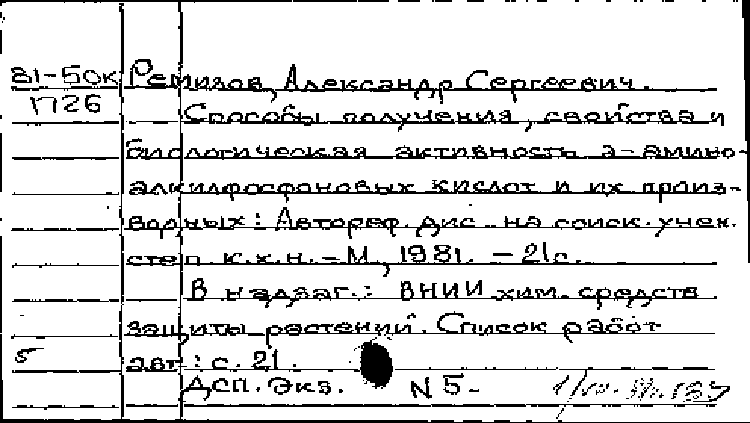 81-50к Ремизов, Александр Сергеевич.
1726 Способы получения, свойства и
биологическая активность α-амино-
алкилфосфоновых кислот и их произ-
водных: Автореф. дис. на соиск. учен.
степ. к.х.н. - М, 1981. - 21с.
В надзаг.: ВНИИ хим. средств
защиты растений. Список работ
5 авт: с. 21.
ДСП. Экз. N 5-